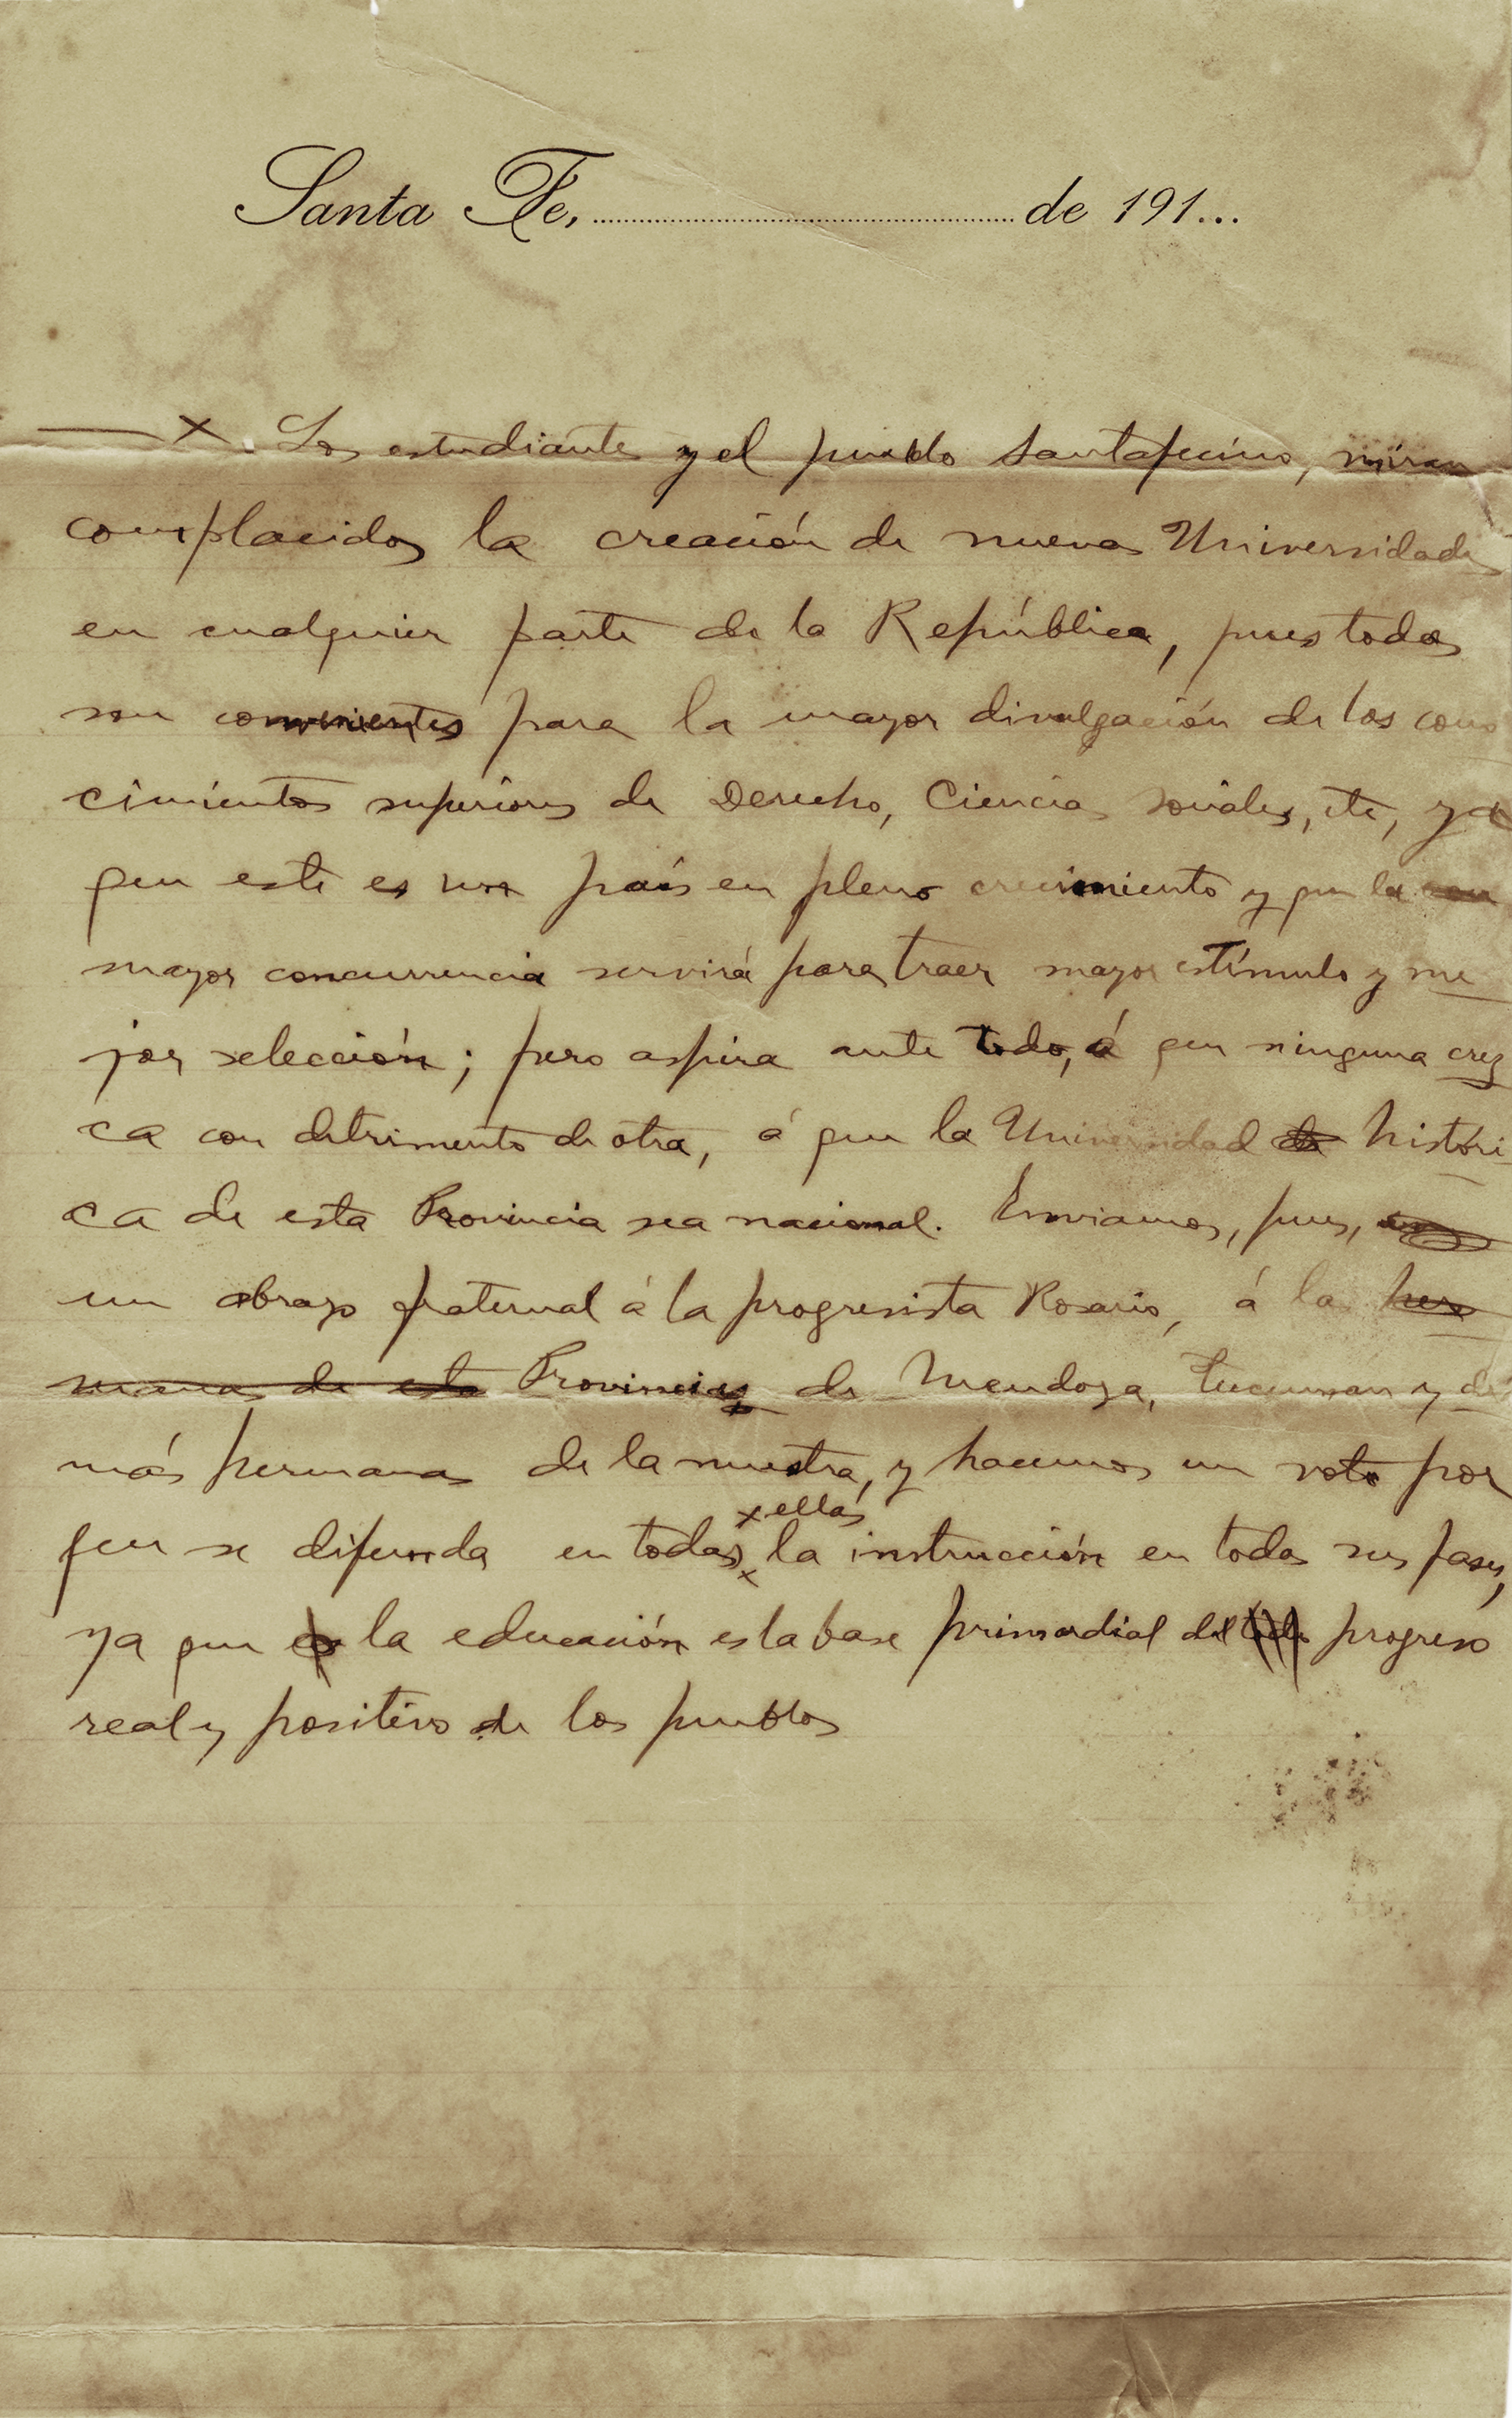 Santa Fe, ........ de 191...
— x. Los estudiantes y el pueblo Santafecino, miran
complacidos la creación de nuevas Universidades
en cualquier parte de la República, pues todas
son convenientes para la mayor divulgación de los cono
cimientos superiores de Derecho, Ciencias Sociales, etc, ya
que este es un país en pleno crecimiento y que la
mayor concurrencia servirá para traer mayor estímulo y me
jor selección; pero aspira ante todo, á que ninguna crez
ca con detrimento de otra, á que la Universidad de históri
ca de esta Provincia sea nacional. Enviamos, pues,
un abrazo fraternal á la progresista Rosario, á las her
manas de esta Provincias de Mendoza, Tucuman y de
más hermanas de la nuestra, y hacemos un voto por
x ellas
que se difunda en todas x la instrucción en todas sus fases,
ya que es la educación es la base primordial del todo progreso
real y positivo de los pueblos